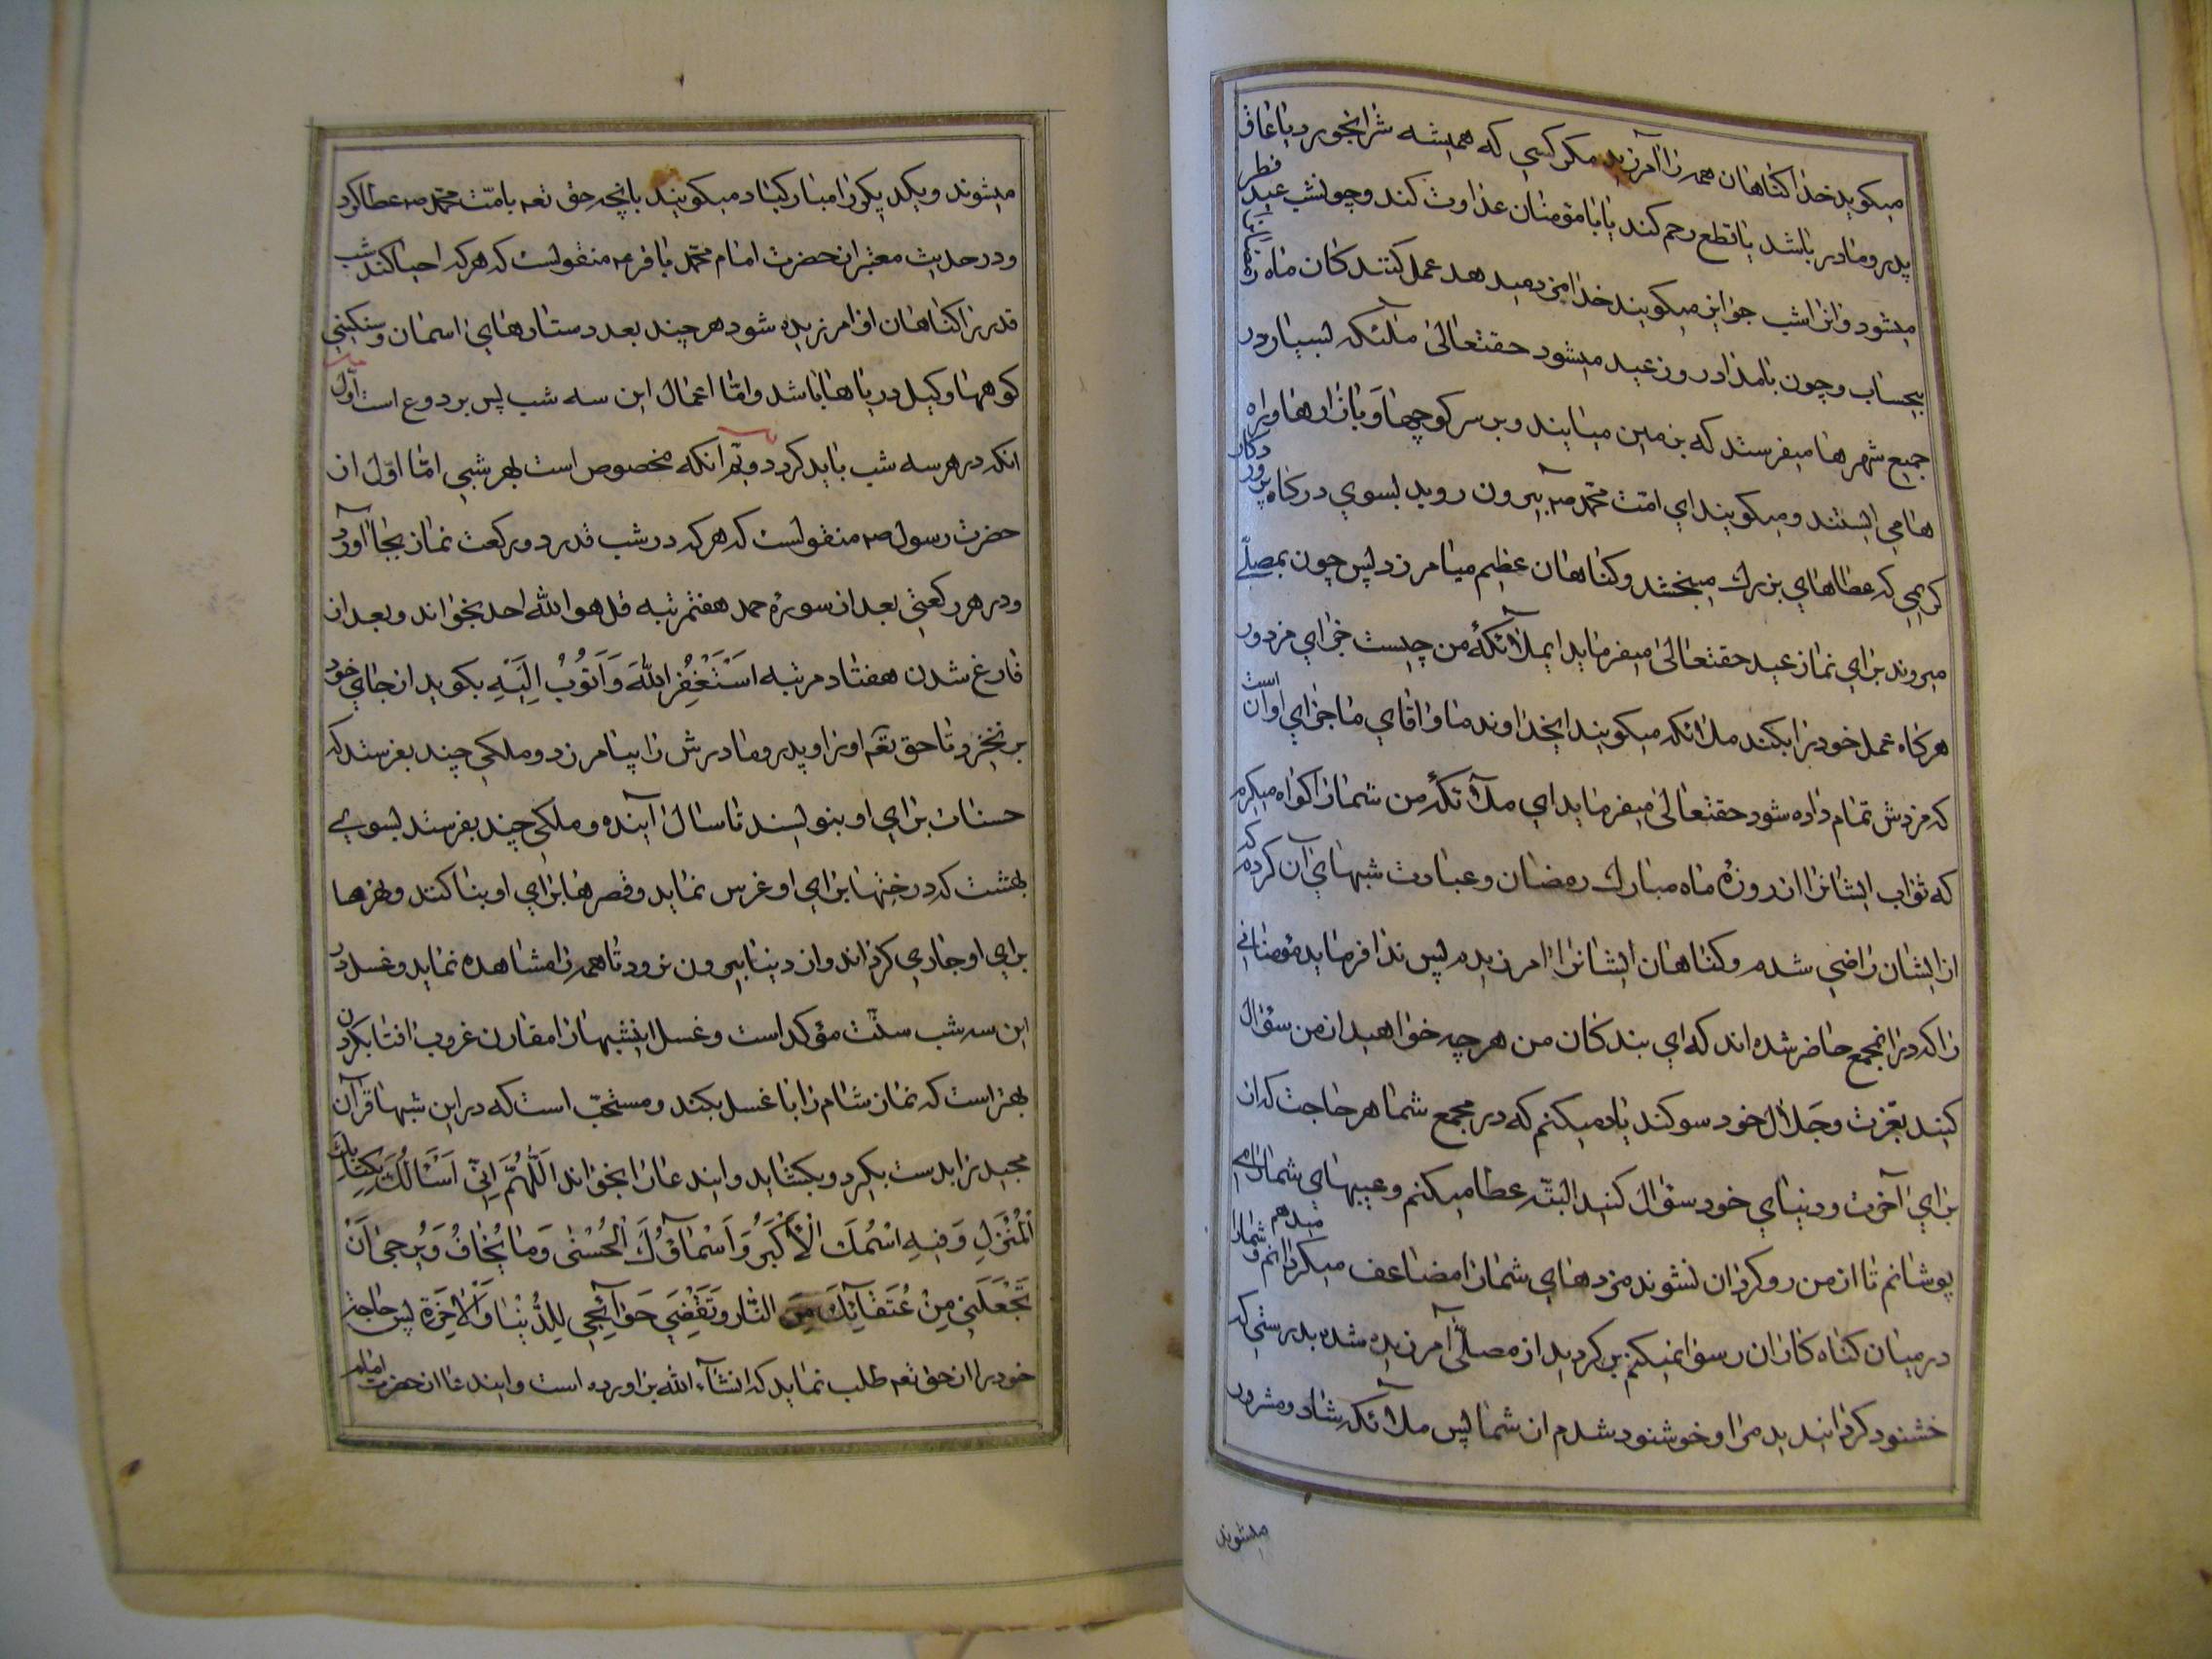 میکوید خدا کناهان همه را آمرزید مکر کسی که همیشه شراب خورد یا عاق
پدر و مادر باشد یا قطع رحم کند یا با مؤمنان عداوت کند و چون شب عید فطر
میشود و انرا شب جوایز میکویند خدا مزد میدهد عمل کنندکان ماه
بیحساب و چون بامداد روز عید میشود حقتعالی ملئکه بسیار در
جمیع شهرها میفرستد که بزمین میایند و بر سر کوچها و بازارها و راه
ها می ایستند و میکویند ای امت محمد صه بیرون روید بسوی درکاه پرورد کار
کریمی که عطاهای بزرك میبخشد و کناهان عظیم میامرزد پس چون بمصلّی
میروند برای نماز عید حقتعالی میفرماید ایملائکهٔ من چیست جزای مزدور
هرکاه عمل خود را بکند ملائکه میکویند ایخداوند ما و اقای ما جزای او ان است
که مزدش تمام داده شود حقتعالی میفرماید ای ملائکهٔ من شما را کواه میکیرم
که ثواب ایشانرا از روزهٔ ماه مبارك رمضان و عبادت شبهای آن کرده که
از ایشان راضی شدم و کناهان ایشانرا امرزیدم پس ندا فرماید مؤمنانی
را که در انمجمع حاضر شده اند که ای بندکان من هر چه خواهید از من سؤال
کنید بعزت و جلال خود سوکند یاد میکنم که در مجمع شما هر حاجت که از
برای آخرت و دنیای خود سؤال کنید البتّه عطا میکنم و عیبهای شما را می
پوشانم تا از من روکردان نشوید مزدهای شما را مضاعف میکردانم و شما را
در میان کناه کاران رسوا نمیکنم برکردید از مصلّی آمرزیده شده بدرستی که
خشنود کردانیدید مرا و خوشنود شدم از شما پس ملائکه شاد و مسرور
میشوند
میشوند و یکدیکر را مبارکباد میکویند بانچه حق تعه بامّت محمد صه عطا کرد
و در حدیث معتبر از حضرت امام محمّد باقر عه منقولست که هر که احیا کند شب
قدر را کناهان او امرزیده شود هر چند بعدد ستارهای اسمان و سنکینی
کوهها و کیل دریاها باشد و امّا اعمال این سه شب پس بر دو نوع است اول
انکه در هر سه شب باید کرد دویّم انکه مخصوص است بهر شبی امّا اوّل از
حضرت رسول صه منقولست که هر که در شب قدر دو رکعت نماز بجا اورد
و در هر رکعتی بعد از سورهٔ حمد هفت مرتبه قل هو الله احد بخواند و بعد از
فارغ شدن هفتاد مرتبه اَسْتَغْفِرُ اللهَ وَ اَتُوبُ اِلَیْهِ بکوید از جای خود
بر نخیزد تا حق تعه او را و پدر و مادرش را بیامرزد و ملکی چند بفرستد که
حسنات برای او بنویسند تا سال آینده و ملکی چند بفرستد بسوی
بهشت که درختها برای او غرس نماید و قصرها برای او بنا کنند و نهرها
برای او جاری کردانند و از دنیا بیرون نرود تا همه را مشاهده نماید و غسل در
این سه شب سنّت مؤکد است و غسل اینشبها را مقارن غروب افتاب کردن
بهتر است که نماز شام را با غسل بکند و مستحبّ است که در این شبها قرآن
مجید را بدست بکیرد و بکشاید و ایندعا را بخواند اَللّهُمَّ اِنّی اَسْاَلُكَ بِکِتابِكَ
الْمُنْزَلِ وَ فیهِ اسْمُكَ الْاَکْبَرُ وَ اَسْماؤُكَ الْحُسْنی وَ ما یُخافُ وَ یُرْجی اَنْ
تَجْعَلَنی مِنْ عُتَقائِكَ مِنَ النّار وَ تَقْضِیَ حَوائِجی لِلدُّنْیا وَ الْاخِرَةِ پس حاجت
خود را از حق تعه طلب نماید که انشاء الله براورده است و ایندعا از حضرت امام